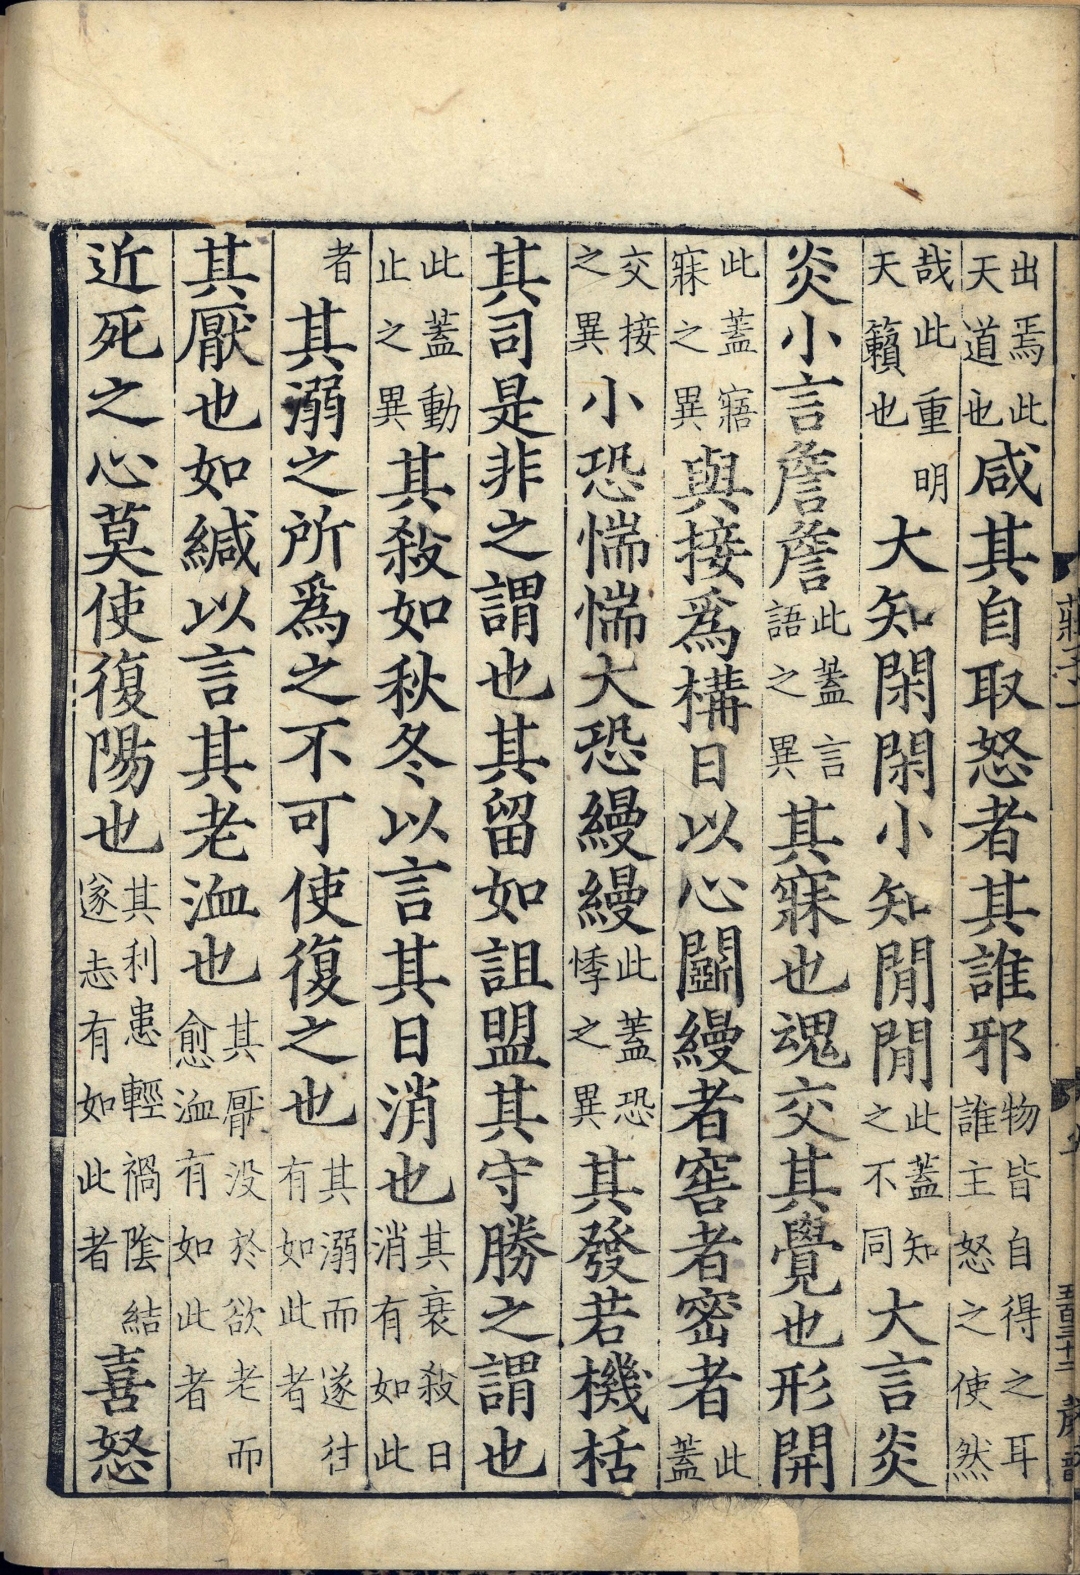 出焉此天道也咸其自取怒者其誰邪物皆自得之耳誰主怒之使然
哉此重明天籟也大知閑閑小知閒閒此蓋知之不同大言炎
炎小言詹詹此蓋言語之異其寐也魂交其覺也形開
此蓋寤寐之異與接爲構日以心鬬縵者窖者密者此蓋
交接之異小恐惴惴大恐縵縵此蓋恐悸之異其發若機栝
其司是非之謂也其留如詛盟其守勝之謂也
此蓋動止之異其殺如秋冬以言其日消也其衰殺日消有如此
者其溺之所爲之不可使復之也其溺而遂往有如此者
其厭也如緘以言其老洫也其厭没於欲老而愈洫有如此者
近死之心莫使復陽也其利患輕禍陰結遂志有如此者喜怒
莊子一
五百三十二